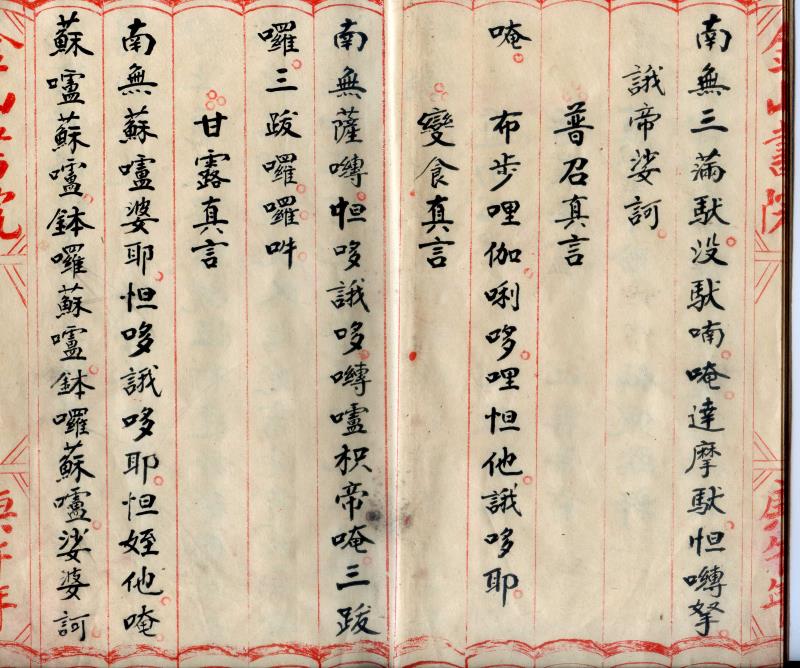 南無三滿馱没馱喃唵達摩馱怛囀拏
誐帝娑訶
普召真言
唵 布步哩伽唎哆哩怛他誐哆耶
變食真言
南無薩囀怛哆誐哆囀嚧枳帝唵三跋
囉三跋囉囉吽
甘露真言
南無蘇嚧婆耶怛哆誐哆耶怛姪他唵
蘇嚧蘇嚧鉢囉蘇嚧鉢囉蘇嚧娑婆訶